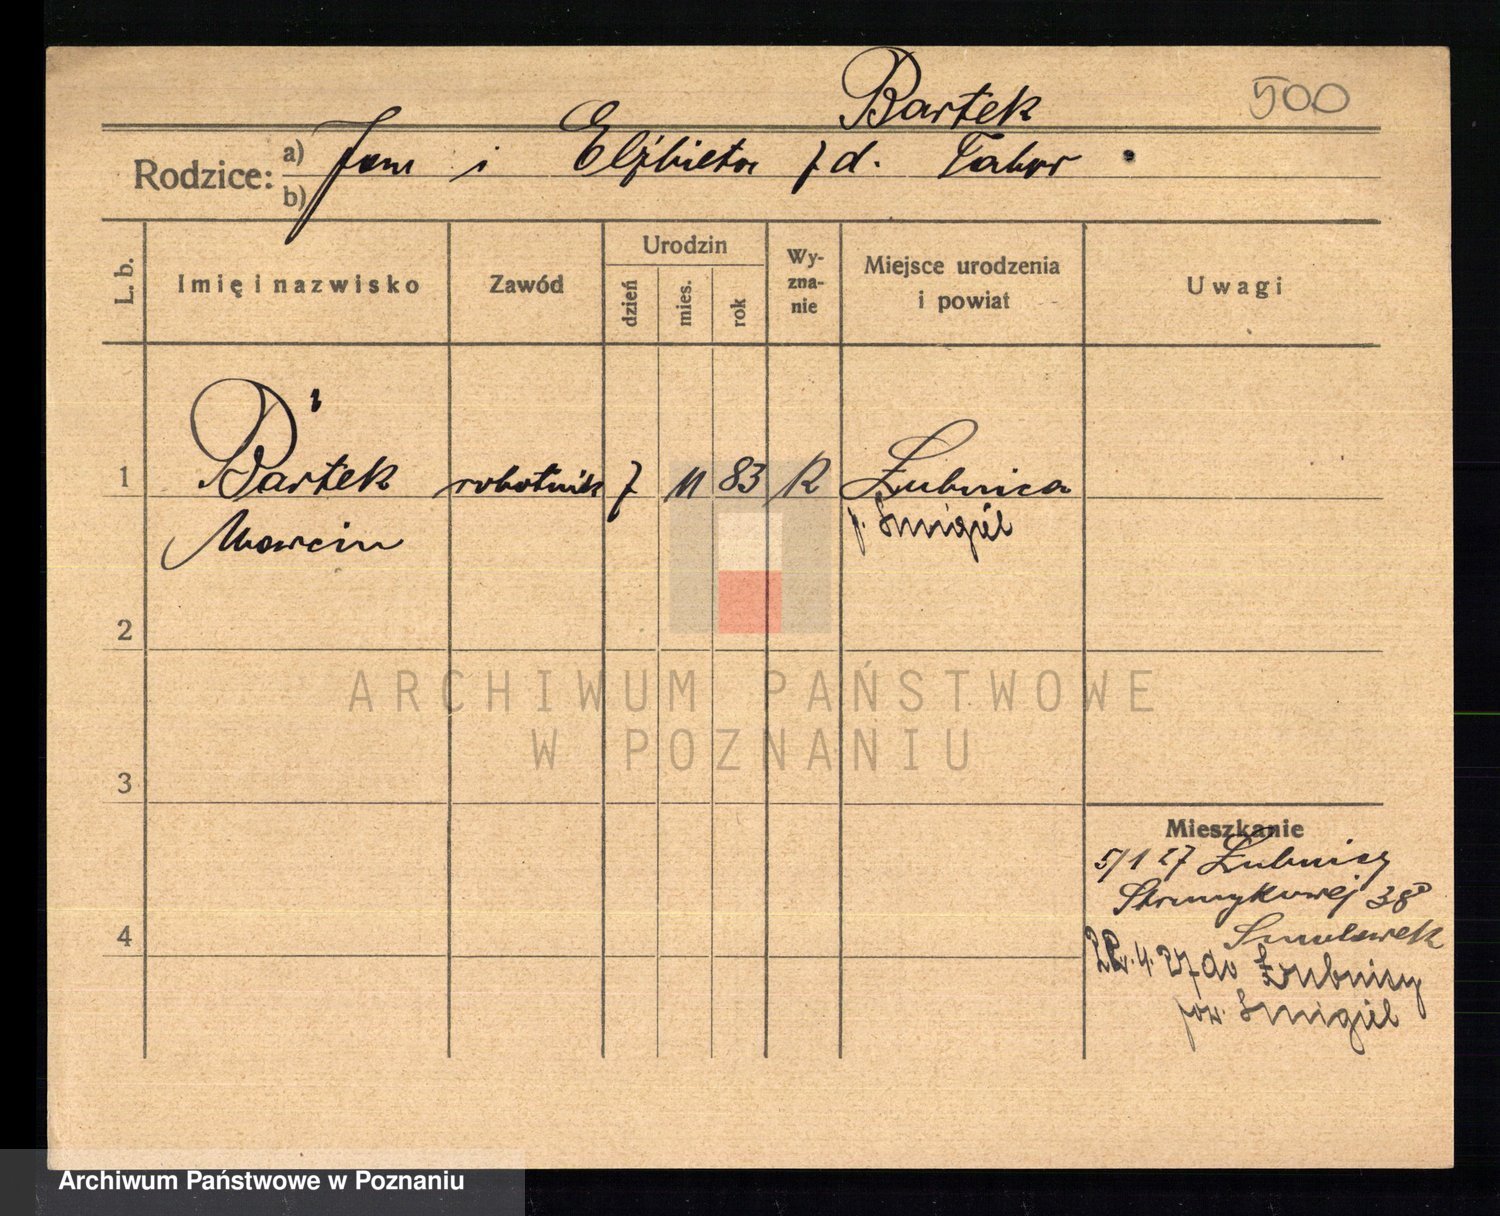 Bartek
500
Rodzice: a) Jan i Elżbieta z d. Tabor
b)
L. b.
Imię i nazwisko
Zawód
Urodzin
dzień
mies.
rok
Wy-
zna-
nie
Miejsce urodzenia
i powiat
Uwagi
1 Bartek robotnik 7 11 83 R Łubnica
Marcin p. Śmigiel
2
3
4
ARCHIWUM PAŃSTWOWE
W POZNANIU
Mieszkanie
5/1 27 Łubnicy
Strumykowej 38
22.4.27 do Łubnicy
pow. Śmigiel
Archiwum Państwowe w Poznaniu